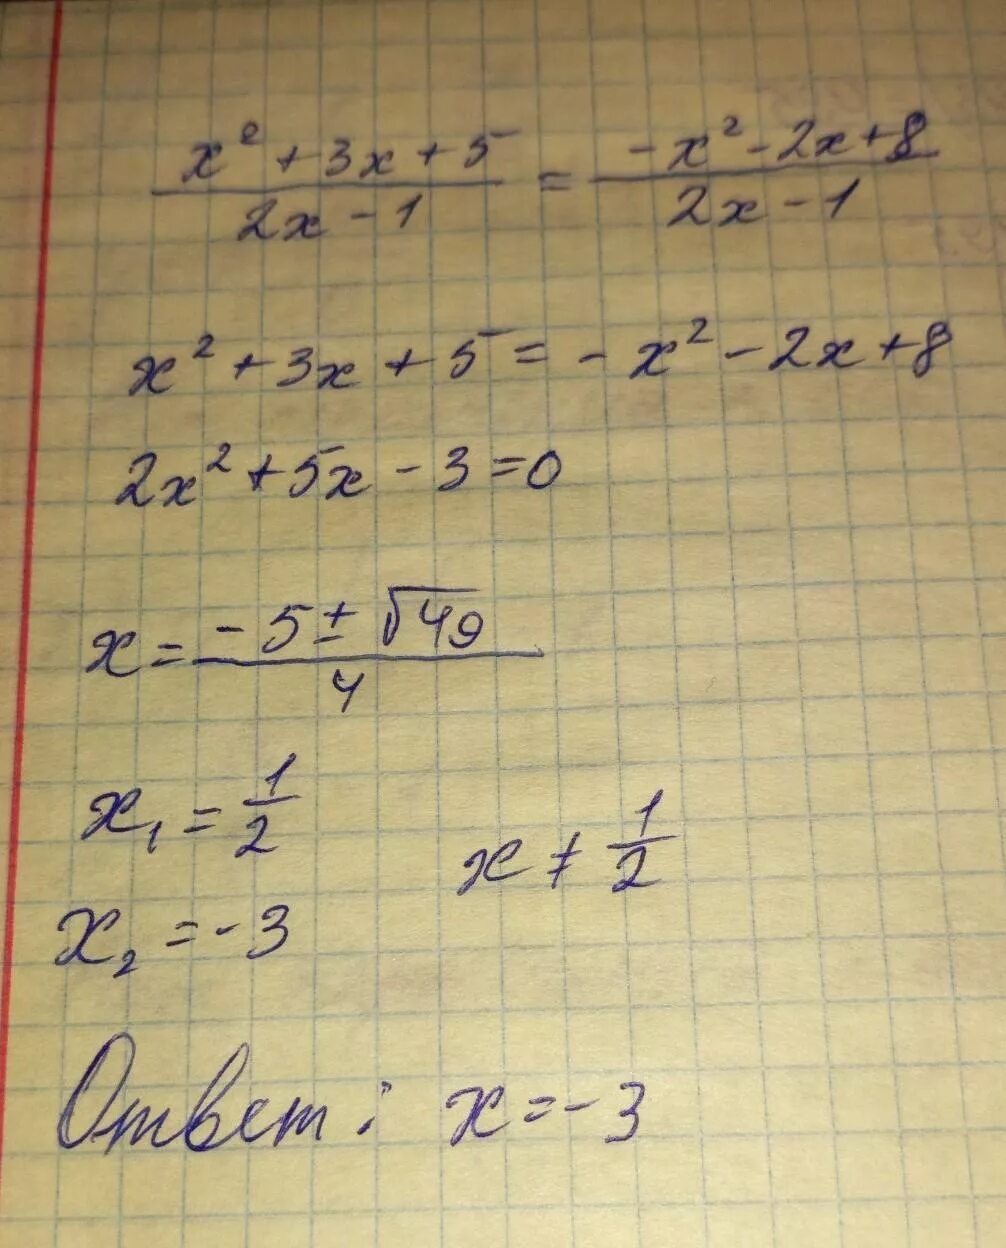 (x² + 3x + 5)/(2x - 1) = (-x² - 2x + 8)/(2x - 1)
x² + 3x + 5 = - x² - 2x + 8
2x² + 5x - 3 = 0
x = (-5 ± √49)/4
x₁ = 1/2
x ≠ 1/2
x₂ = -3
Ответ: x = -3